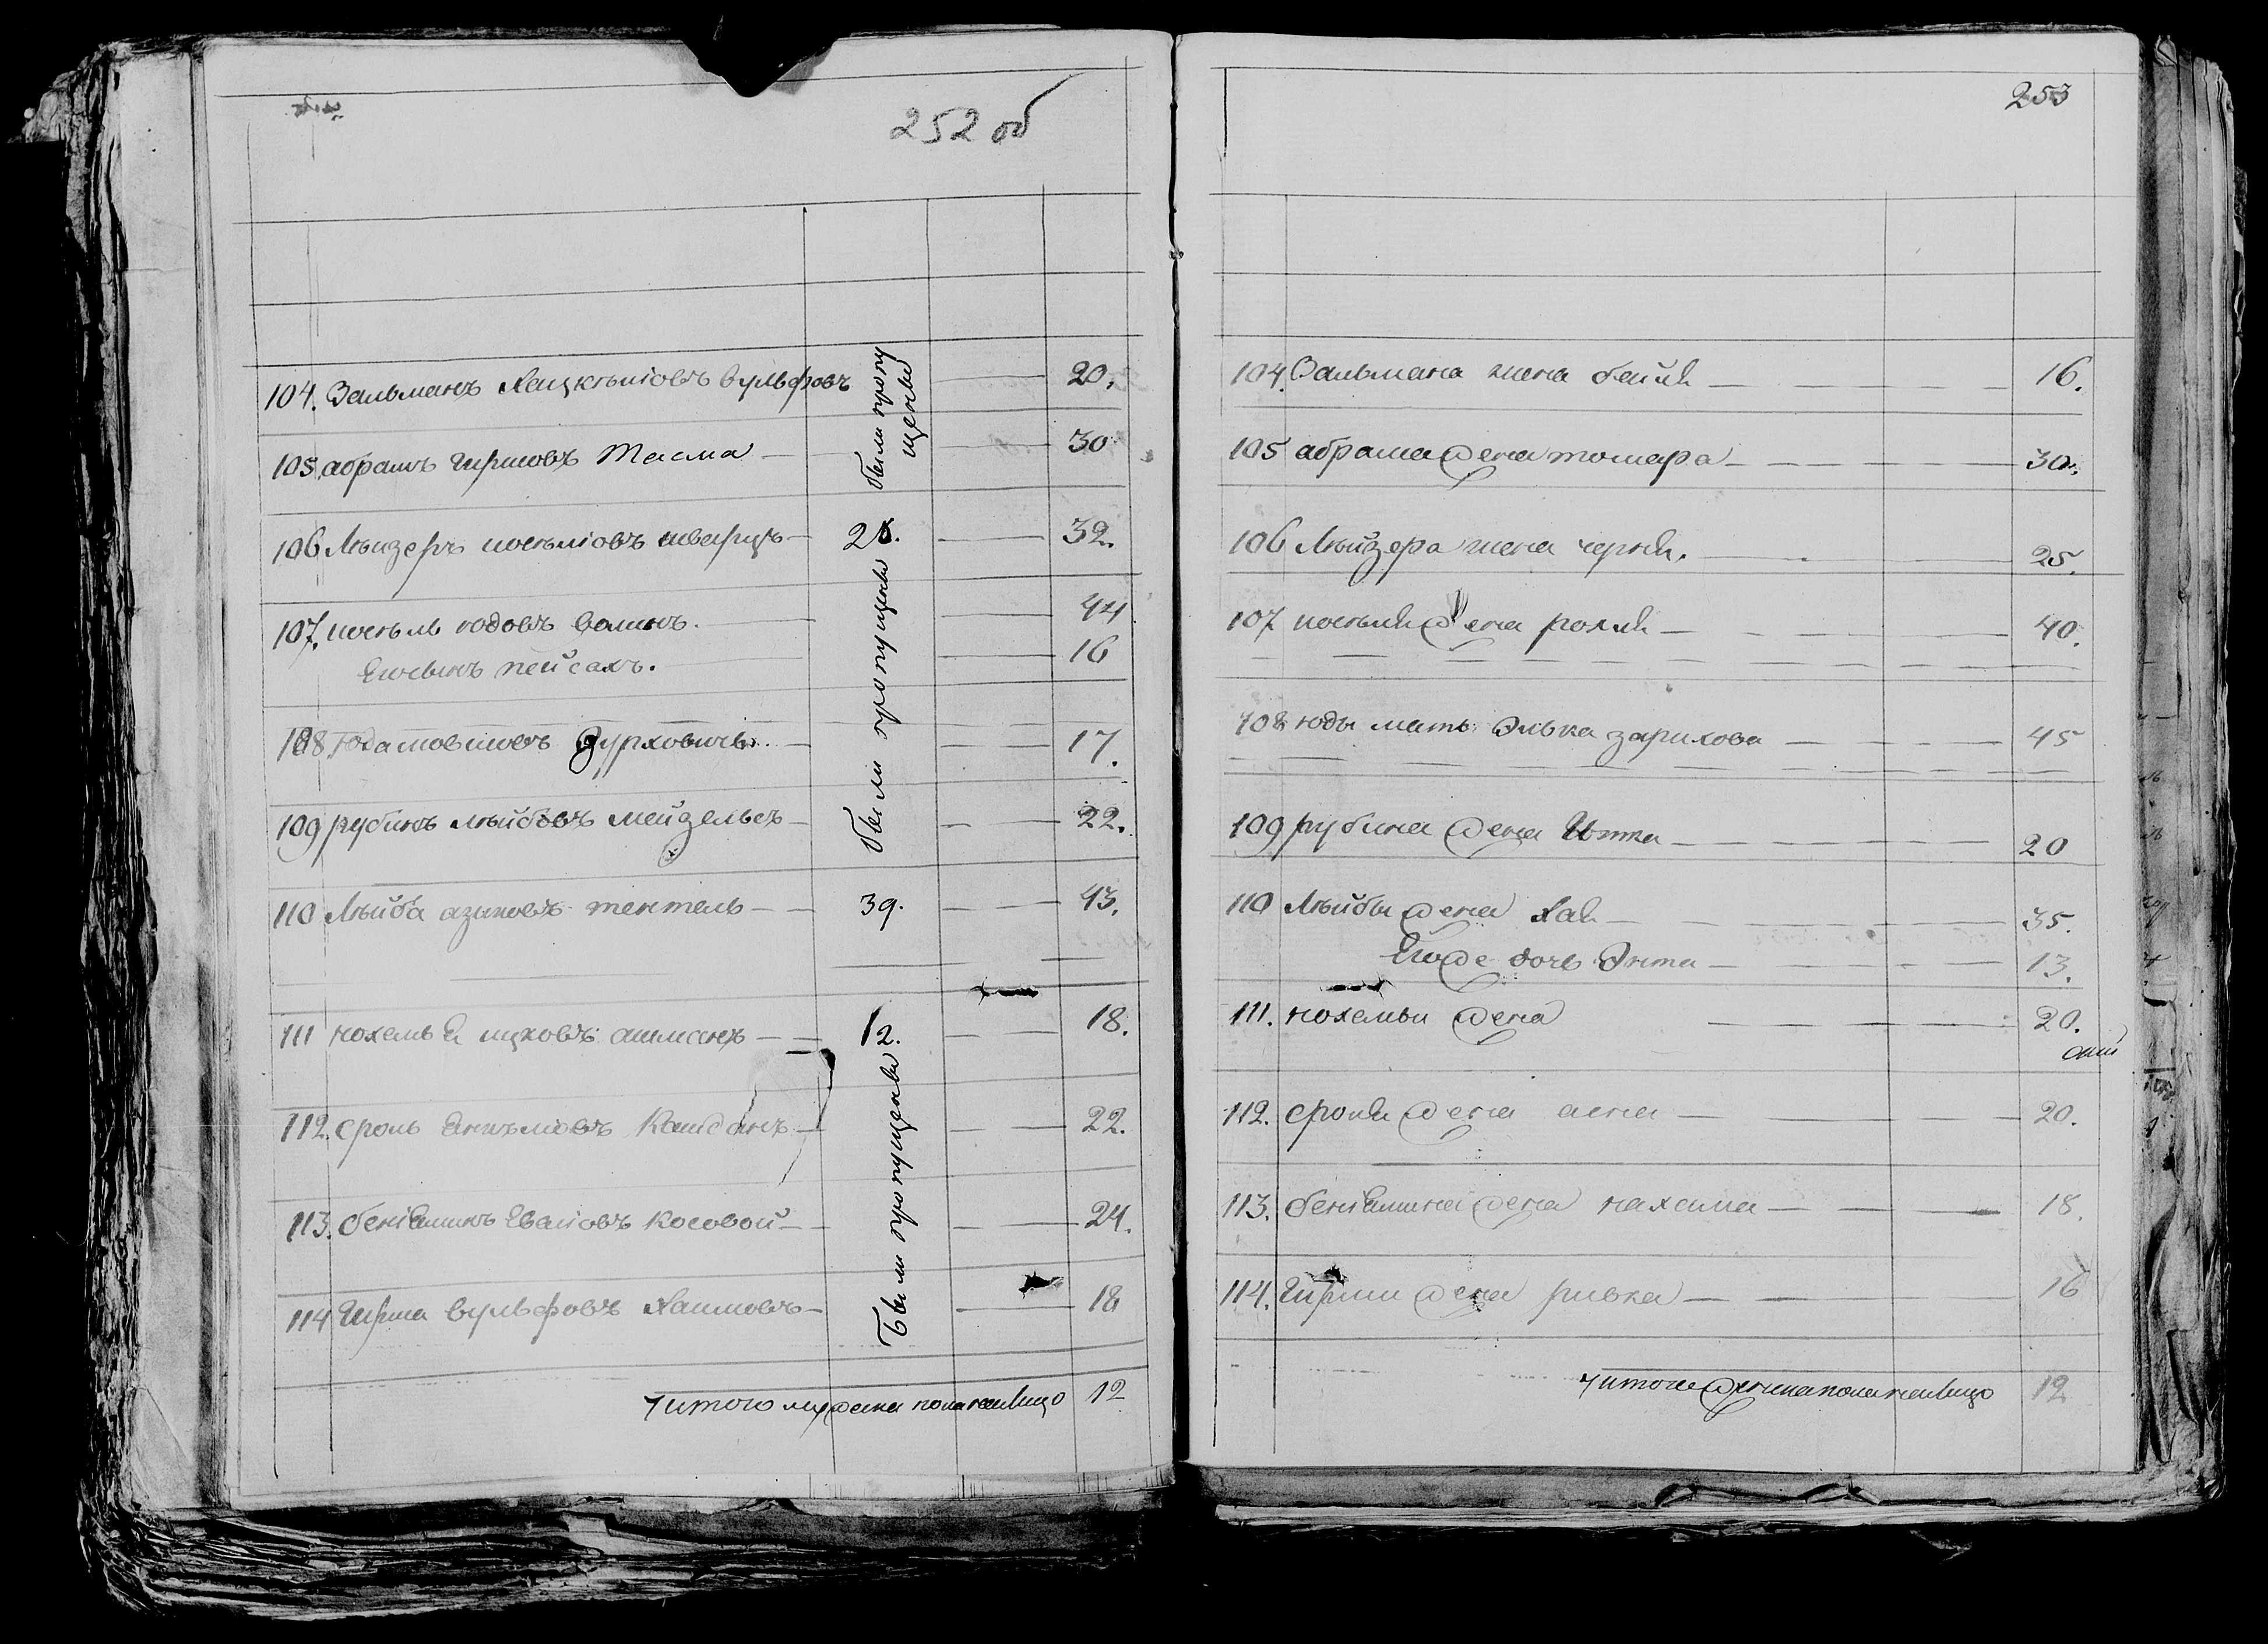 252 об
104. Зальманъ Хацкѣліовъ вульфовъ 20.
были пропу
щены
105. абрамъ гиршовъ Тасма 30
106 Лѣизеръ иосѣліовъ шварцъ 32.
107. иосѣль юдовъ волинъ. 44
были пропущены
Егосынъ пейсахъ. 16
108 юда мовшовъ Дурховичъ. 17.
109 рубинъ лѣибовъ мейзельсъ 22.
110 Лѣиба азиковъ тентель 39. 43.
111 нохемъ Ицковъ 12. 18.
112. сроль Анчѣловъ 22.
были пропущены
113. бенiаминъ Косовой 24.
114 Гирша вульфовъ Хаимовъ 18
итого мужеска пола налицо 12
253
104. Залмана жена бейля 16.
105 абрама жена томара 30.
106 Лѣйзера жена черня. 25.
107 иосѣля жена рохля 40.
108 юды мать Элька зарихова 45
109 рубина жена Итта 20
110 Лѣйбы жена Хая 35.
Егоже дочь Энта 13.
111. нохемы жена 20.
112. сроля жена 20.
113. бенiамина жена нахама 18.
114. Гирши жена ривка 16
итого женска пола налицо 12